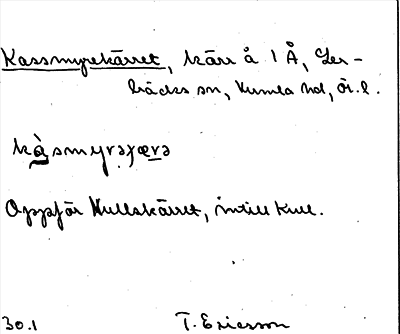 Kassmyrekärret, kärr å 1 Å, Ler-
bäcks sn, Kumla hd, Ör. l.
kàsmyrəçærə
Uppför Kullskärret, intill Kull.
30.1 T. Ericsson